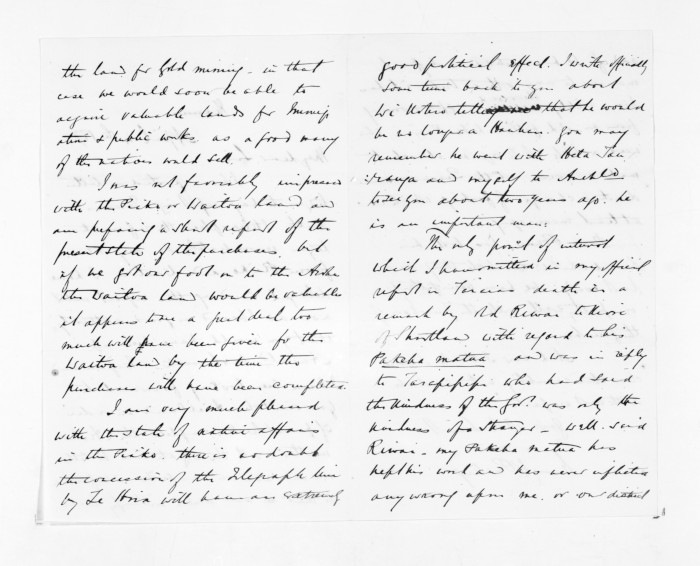 the land for Gold mining - in that
case we would soon be able to
acquire valuable lands for Immig
ations & public works as a good many
of the natives would sell.
I was not favorably impressed
with the Piako or Waitoa land and
am preparing a short report of the
present state of the purchases. but
if we got our foot on to the Aroha
the Waitoa land would be valuable
it appears to me a great deal too
much will have been given for the
Waitoa land by the time the
purchases will have been completed.
I am very much pleased
with the state of native affairs
in the Piako. there is no doubt
the concession of the Telegraph line
by Te Hira will have an extremely
good political effect. I wrote officially
some time back to you about
he would
be no longer a Hauhau. you may
remember he went with Hota Tau
ranga and myself to Auckld
to see you about two years ago. he
is an important man.
The only point of interest
which I have omitted in my official
report in death is a
remark by old Riwai
of Shortland with regard to his
Pakeha matua and was in reply
to Taraipipipi who had said
the kindness of the Govt. was only the
kindness of a stranger - well. said
Riwai - my Pakeha matua has
kept his word and has never inflicted
any wrong upon me. or our district